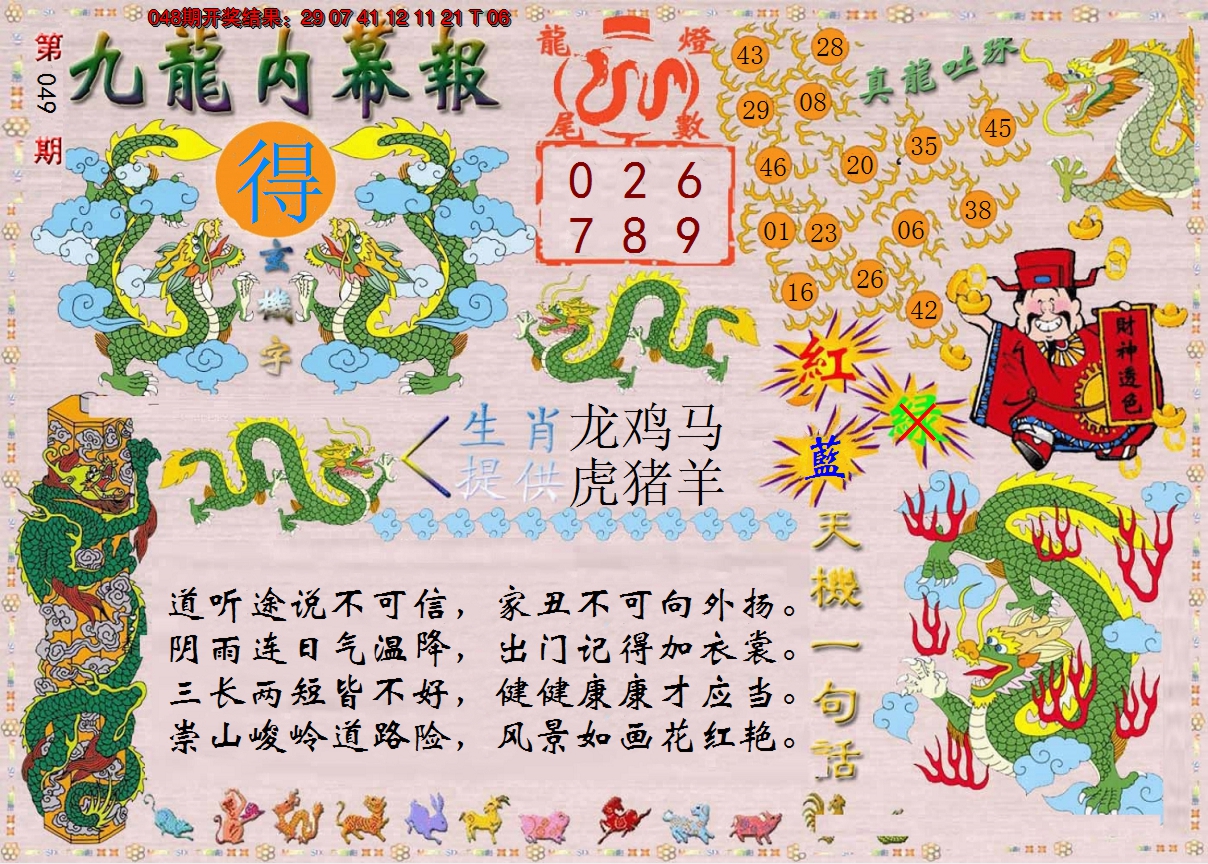 048期开奖结果：29 07 41 12 11 21 T 06
第049期
九龍内幕報
得
玄機字
龍燈
尾數
0 2 6
7 8 9
真龍吐珠
43 28
29 08
46 20 35 45
01 23 06 38
16 26 42
紅
绿
藍
財神透色
生肖提供
龙鸡马
虎猪羊
天機一句話
道听途说不可信，家丑不可向外扬。
阴雨连日气温降，出门记得加衣裳。
三长两短皆不好，健健康康才应当。
崇山峻岭道路险，风景如画花红艳。